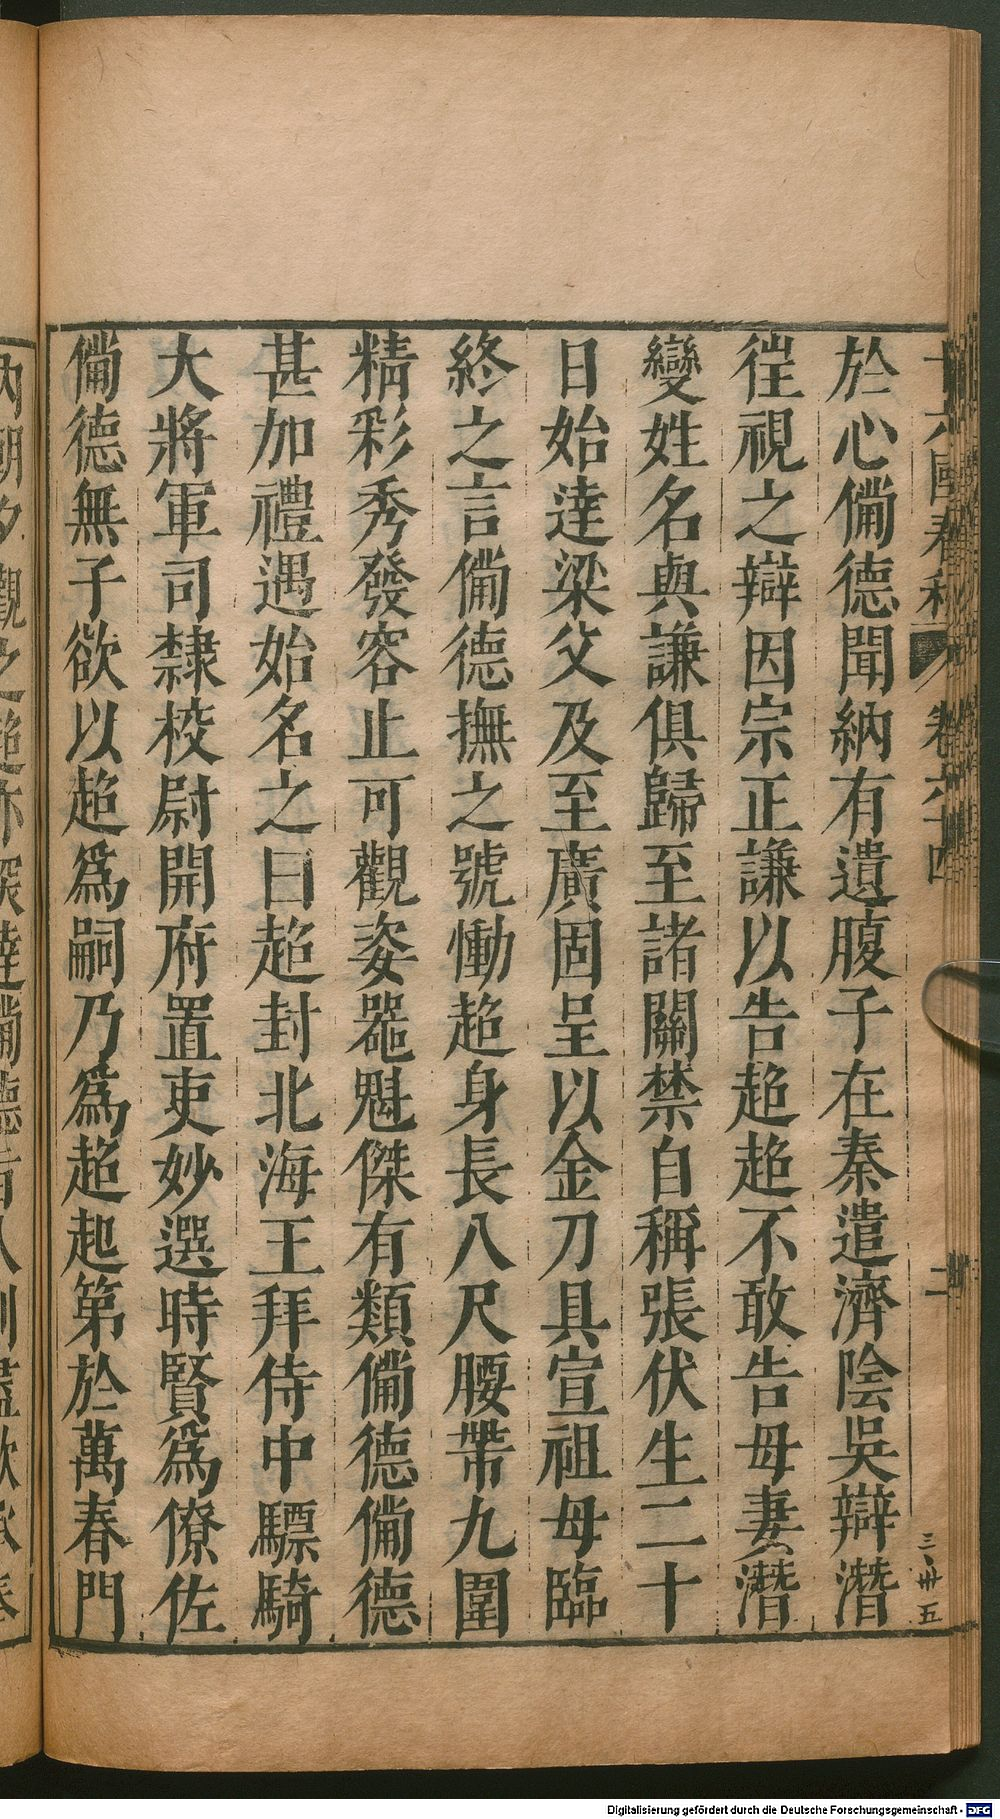 於心備德聞納有遺腹子在秦遣濟陰吳辯潛
徃視之辯因宗正謙以告超超不敢告母妻潛
變姓名與謙俱歸至諸關禁自稱張伏生二十
日始達梁父及至廣固呈以金刀具宣祖母臨
終之言備德撫之號慟超身長八尺腰帶九圍
精彩秀發容止可觀姿器魁傑有類備德備德
甚加禮遇始名之曰超封北海王拜侍中驃騎
大將軍司隸校尉開府置吏妙選時賢爲僚佐
備德無子欲以超爲嗣乃爲超起第於萬春門
二
三、卅五
Digitalisierung gefördert durch die Deutsche Forschungsgemeinschaft - DFG